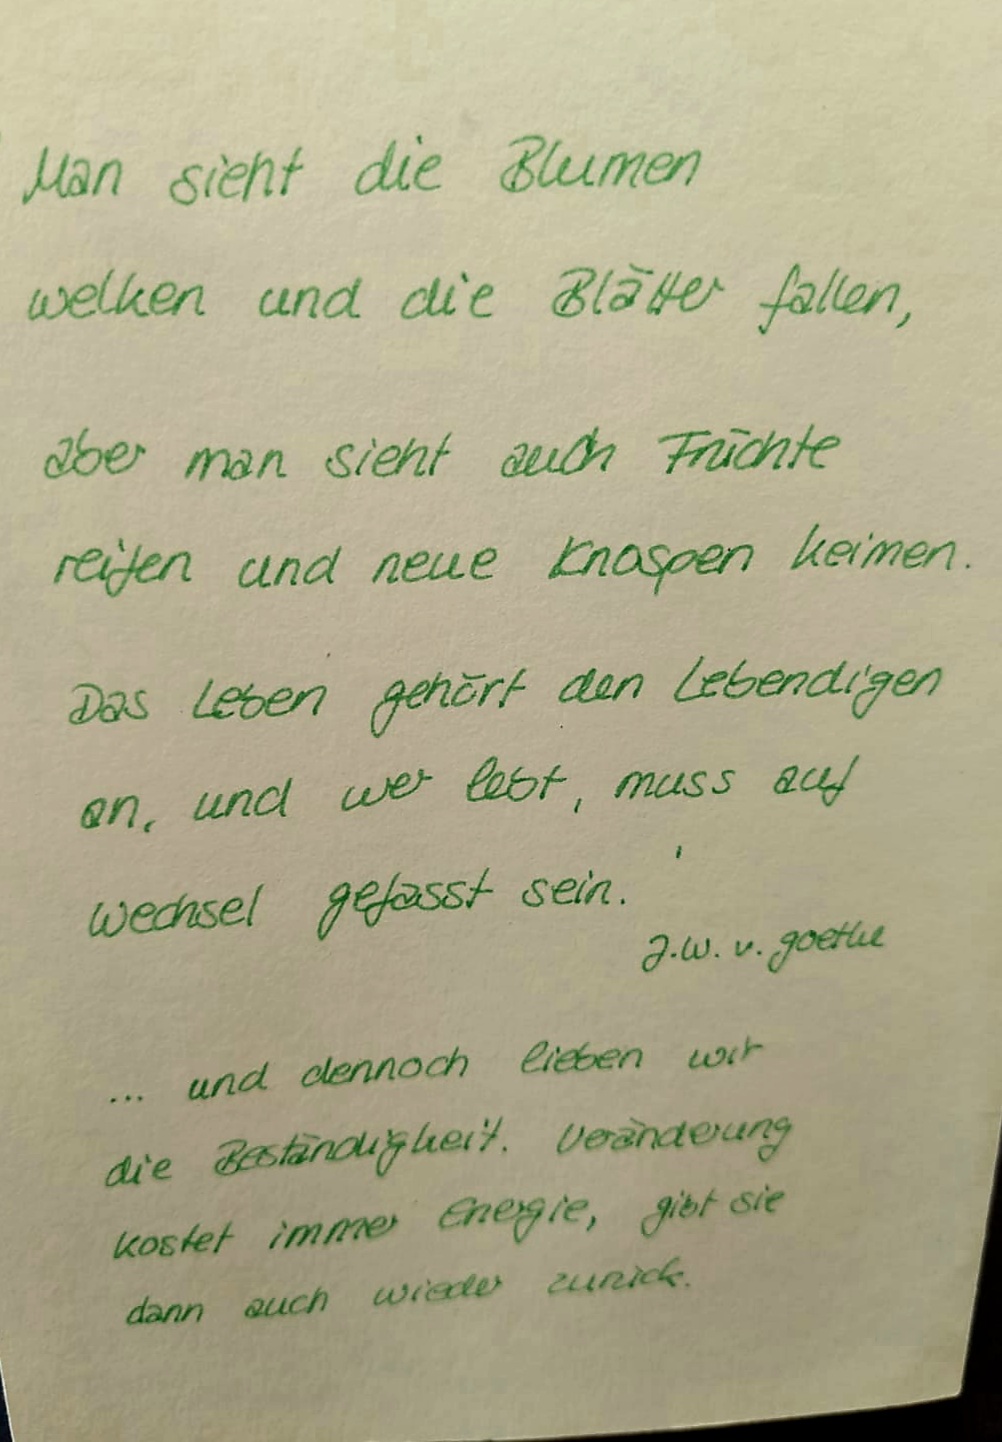 Man sieht die Blumen
welken und die Blätter fallen,
aber man sieht auch Früchte
reifen und neue Knospen keimen.
Das Leben gehört den Lebendigen
an, und wer lebt, muss auf
Wechsel gefasst sein.
J.W. v. Goethe
... und dennoch lieben wir
die Beständigkeit. Veränderung
kostet immer Energie, gibt sie
dann auch wieder zurück.